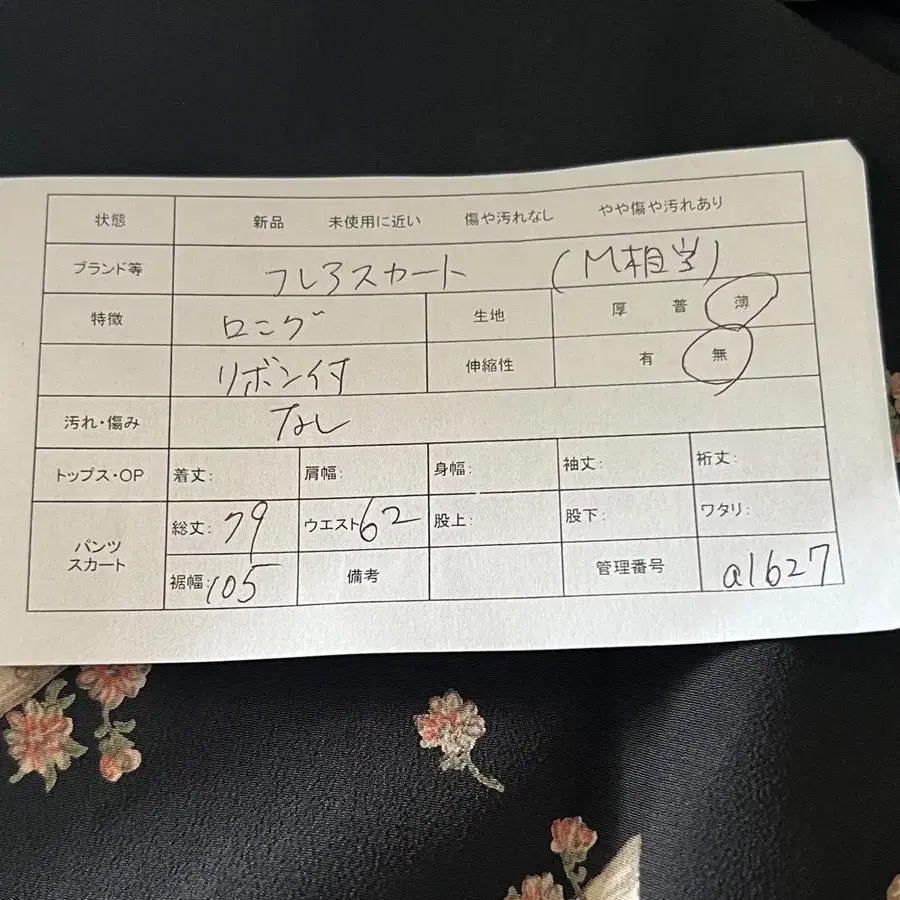 状態 新品 未使用に近い 傷や汚れなし やや傷や汚れあり
ブランド等 フレアスカート (M相当)
特徴 ロング 生地 厚 普 薄
リボン付 伸縮性 有 無
汚れ・傷み なし
トップス・OP 着丈: 肩幅: 身幅: 袖丈: 裄丈:
パンツ スカート 総丈: 79 ウエスト 62 股上: 股下: ワタリ:
裾幅: 105 備考 管理番号 a1627